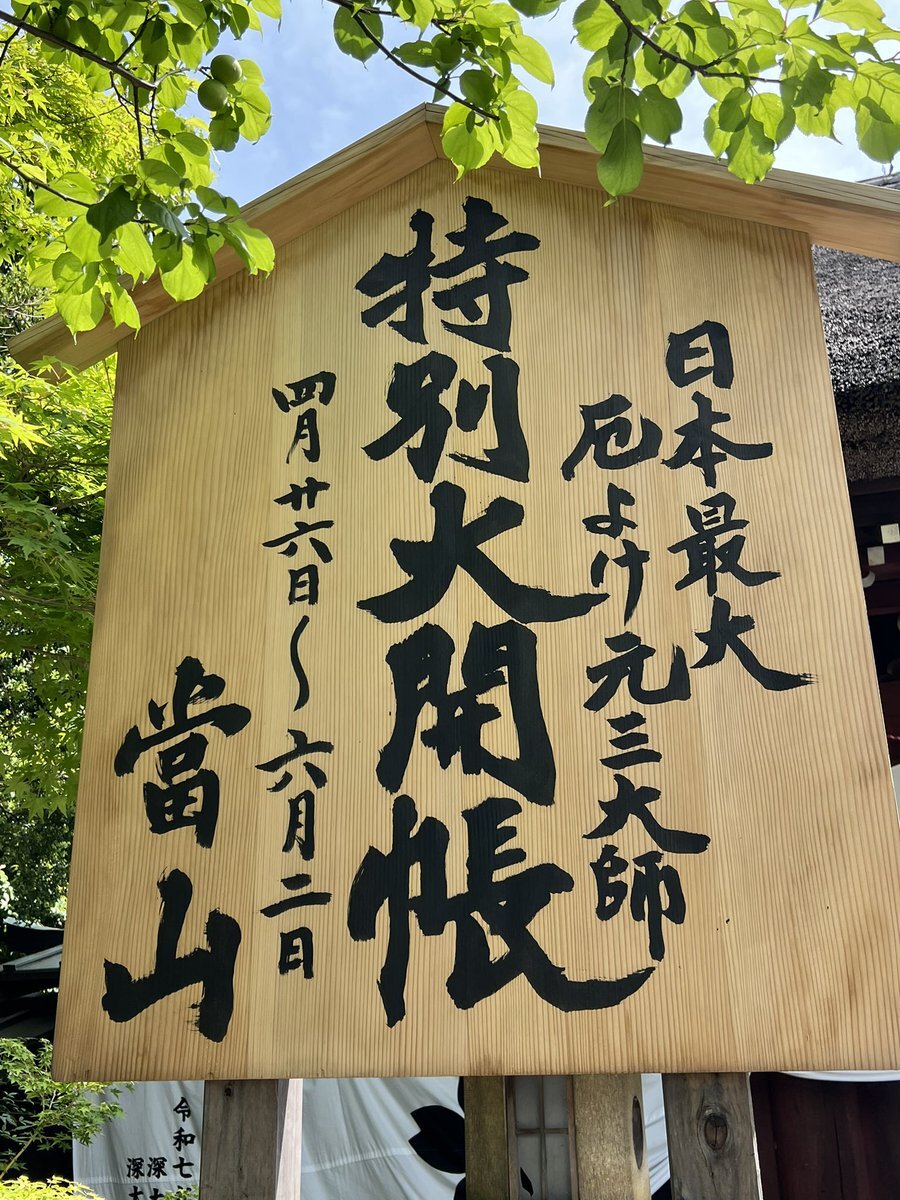 日本最大
厄よけ元三大師
特別大開帳
四月廿六日〜六月二日
當山
令和七
深
深